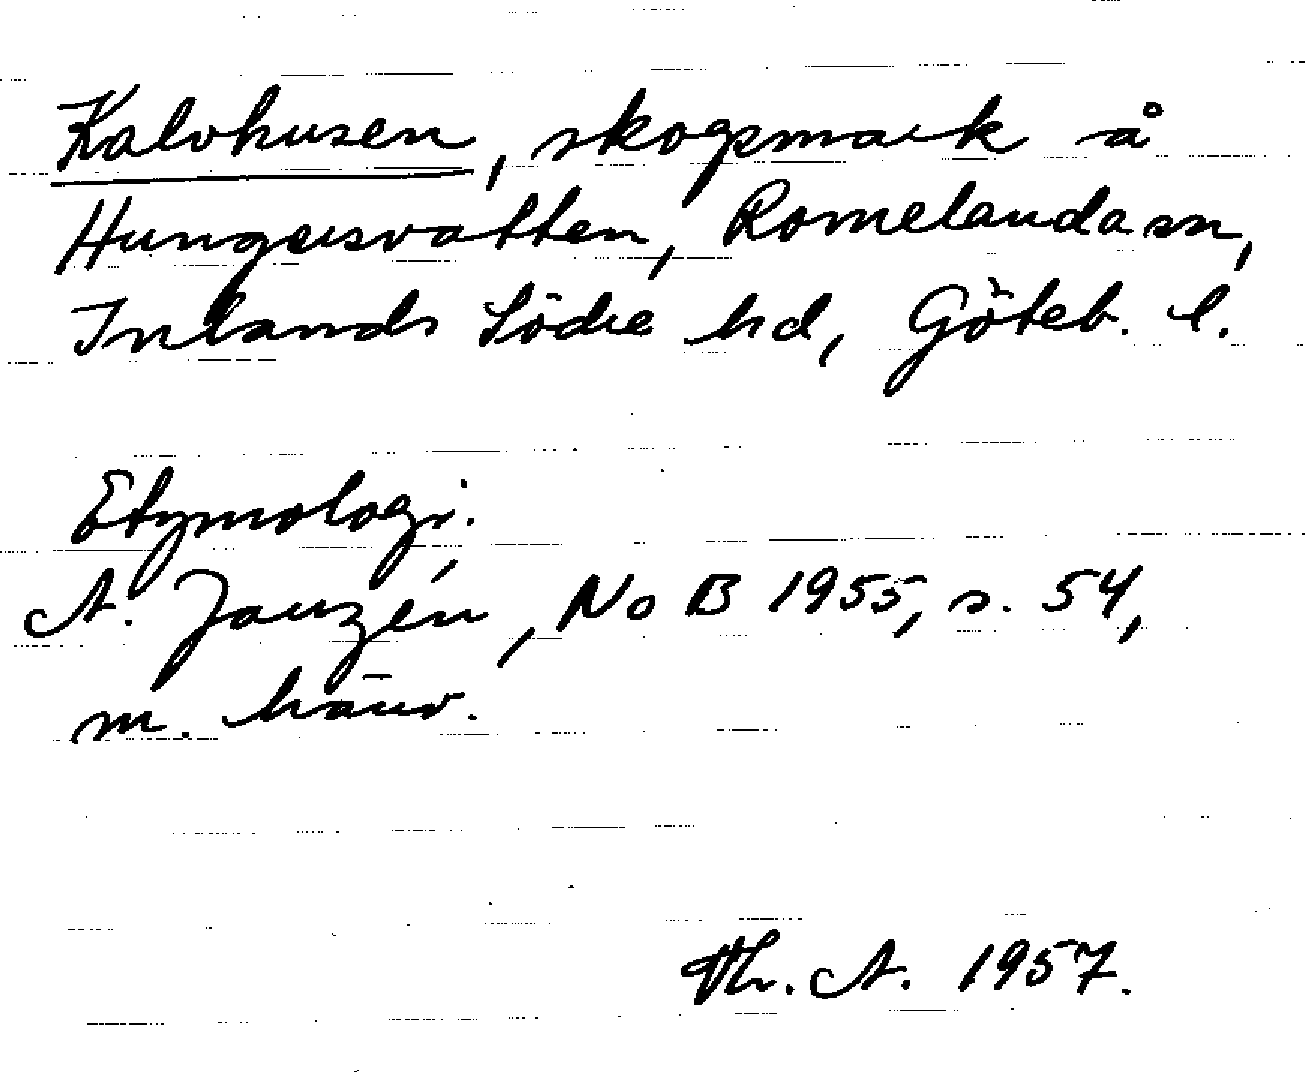 Kalvhusen, skogsmark å
Hungersvatten, Romelanda sn,
Inlands Södre hd, Göteb. l.
Etymologi.
A. Janzén, NoB 1955, s. 54,
m. hänv.
Th. A. 1957.